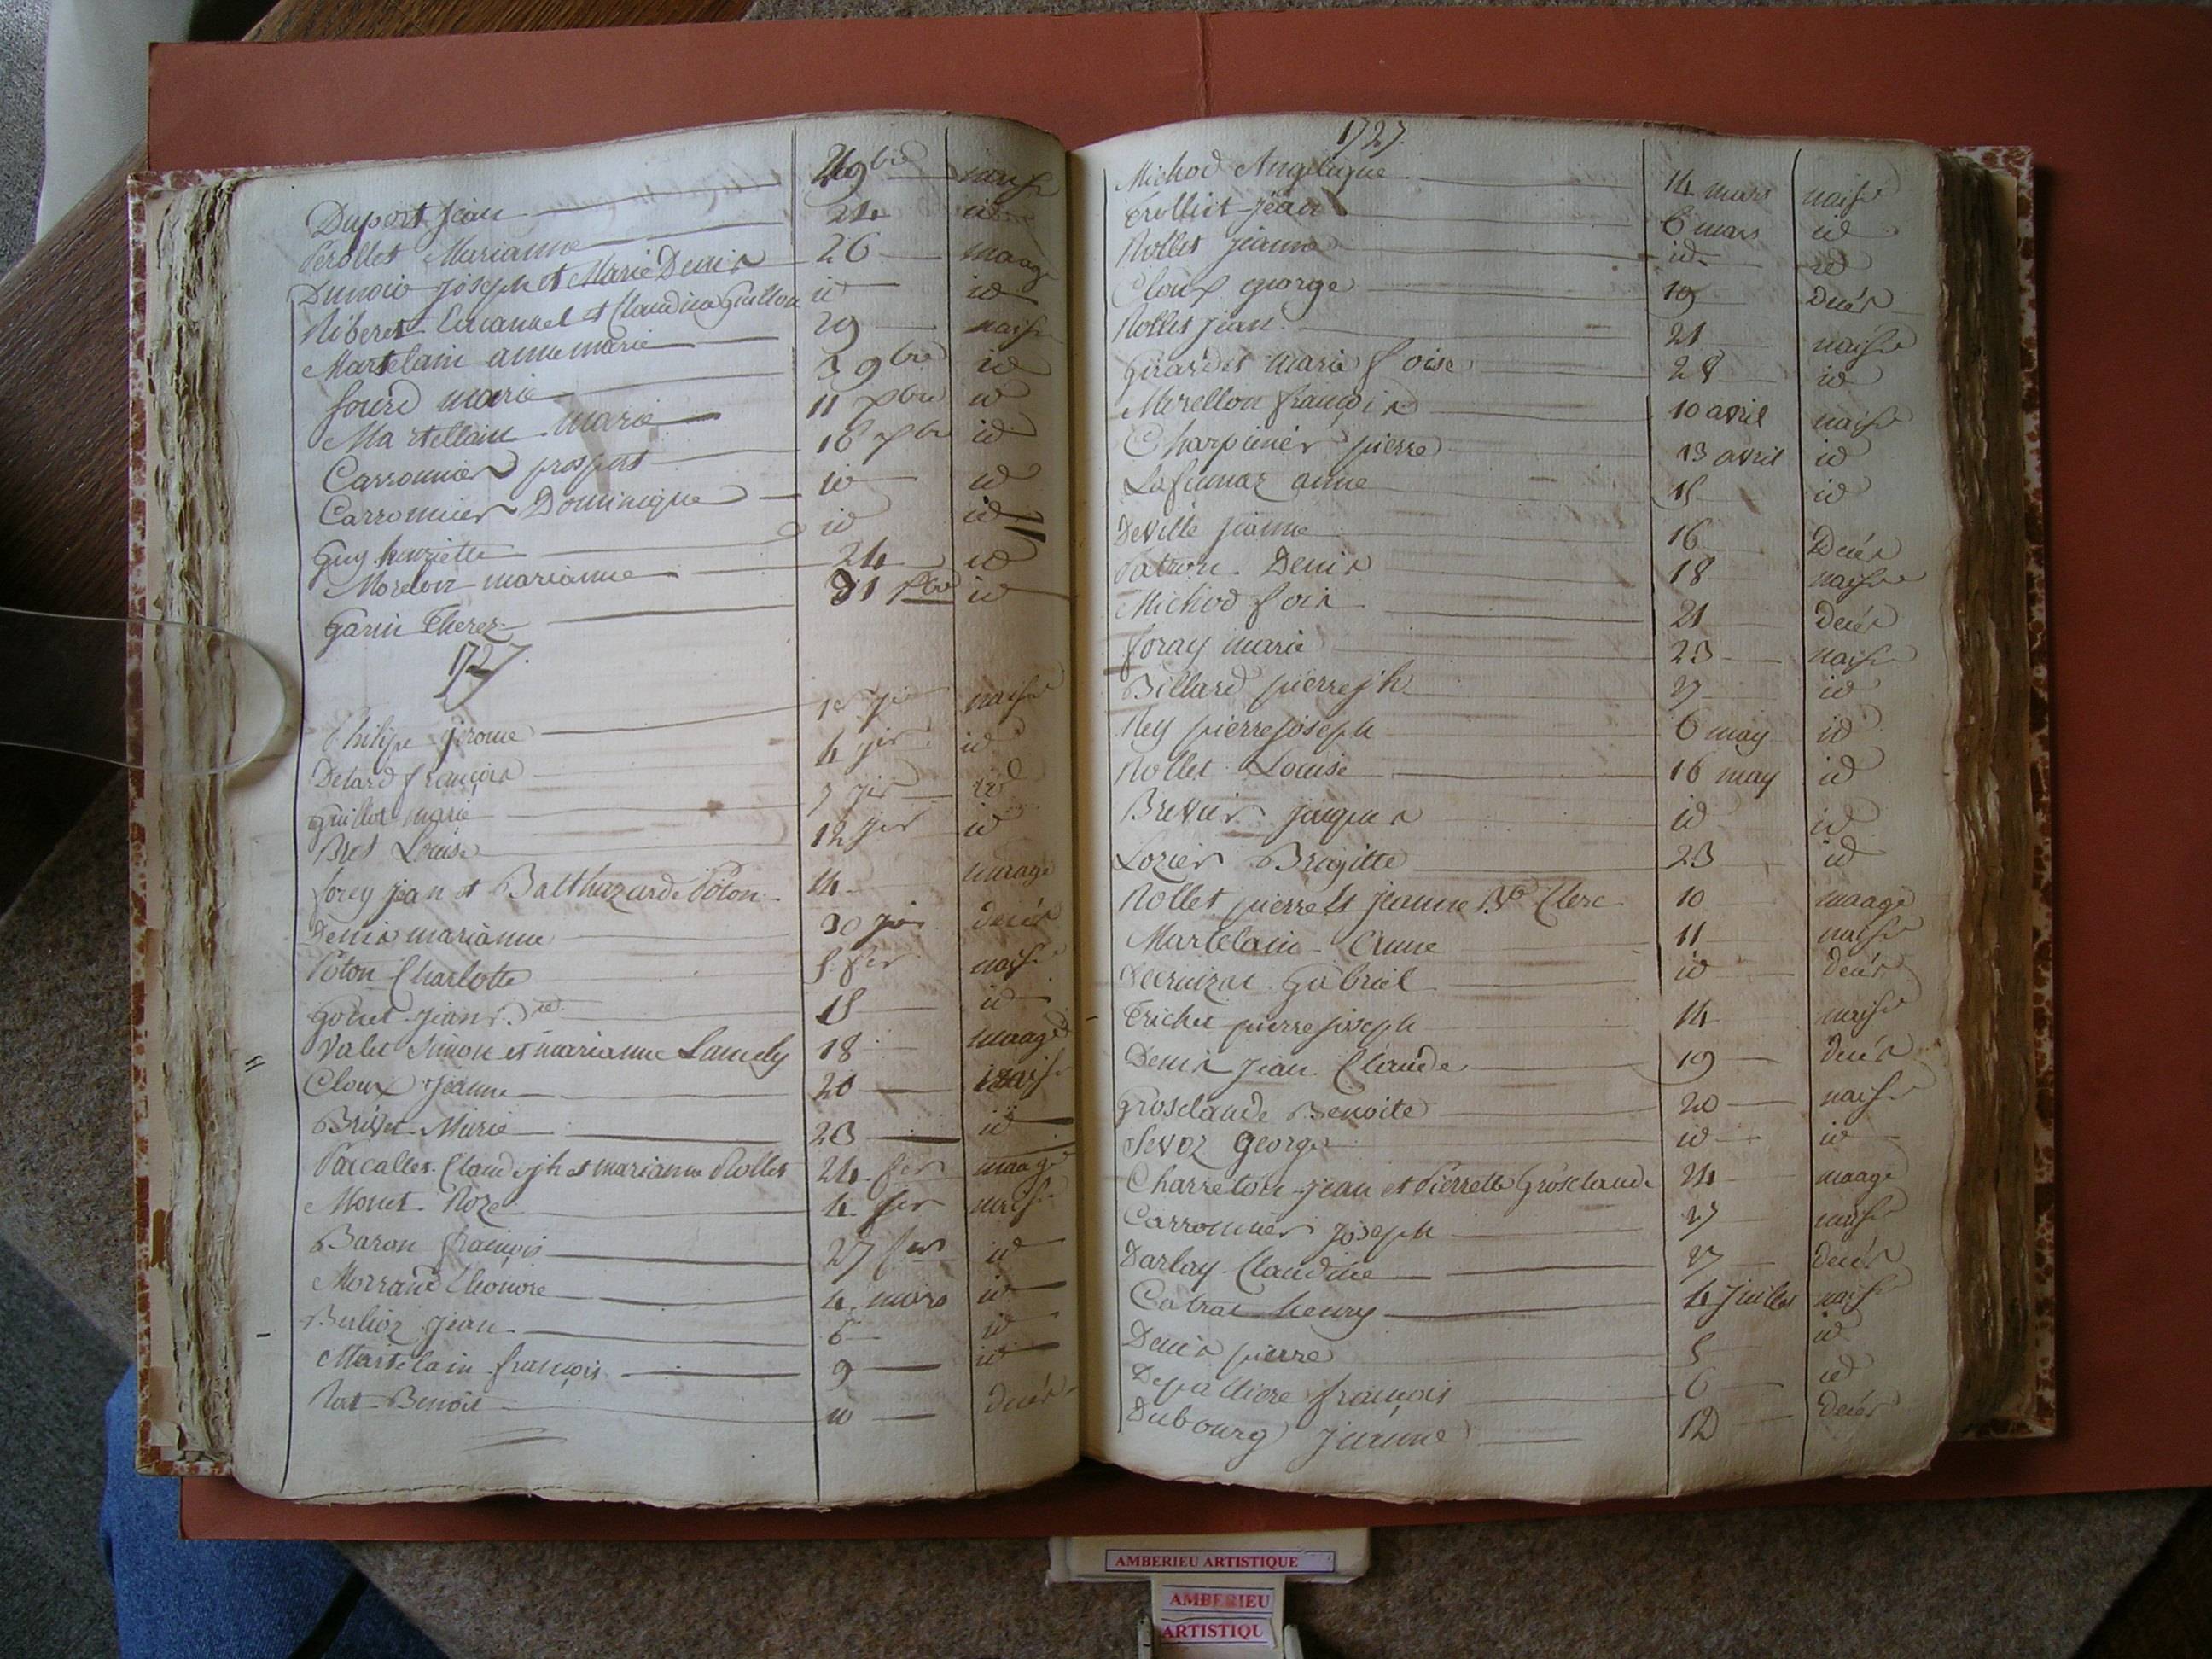 Duport Jean 9bre naisse
Perollet Marianne 24 id
Dunoir joseph et Marie Denis 26 maage
Riberet Emanuel et Claudine Guillon id id
Martelain anne marie 29 naisse
fourd marie 3 9bre id
Martellain marie 11 id
Carronnier prospert 16 id
Carronnier Dominique id id
Guy henriette id id
Morelon marianne 24 id
Garin Therez 31 id
1727.
Philipe jerome 1er naisse
Delard françois 4 jer id
Guillot marie 7 jer id
Bret Louise 12 jer id
forey jean et Balthazarde Poton 14 maage
Denis marianne 30 decés
Poton Charlotte fer naisse
Gonet jean id
Valet Simon et marianne 18 maage
Cloux Jeanne 20 naisse
Brivet Marie 23 id
Pascallet Claude jh et marianne Rollet 24 fer maage
Monet Roze 4 fer naisse
Baron françois 27 fer id
Morrand Eleonore 4 mars id
Berlioz jean 6 id
Martelain françois 9 id
Benoit decés
1727.
Michod Angelique 14 mars naisse
Trolliet jean 6 mars id
Rollet jeanne id id
Cloux george 19 decés
Rollet jean 21 naisse
Girardet marie foise 28 id
Merellon françois 10 avril naisse
Charpinet pierre 13 avril id
Lafumaz anne 15 id
Deville jeanne 16 Decés
Patron Denis 18 naisse
Michod fois 21 decés
foray marie 23 naisse
Billard pierre jh 27 id
Rey pierre joseph 6 may id
Rollet Louise 16 may id
Brevier jacques id id
Lozier Brigitte 23 id
Rollet pierre et jeanne Bte Clerc 10 maage
Martelain Anne 11 naisse
Gabriel id decés
Trichet pierre joseph 14 naisse
Denis Jean Claude 19 decés
Grosclaude Benoite 20 naisse
Sevoz George id id
Charreton jean et Pierrette Grosclaude 24 maage
Carronnier joseph 27 naisse
Darlay Claudine 27 decés
henry 4 juillet naisse
Denis pierre 5 id
Depalliere françois 6 id
Dubourg jeanne 12 decés
AMBERIEU ARTISTIQUE
AMBERIEU
ARTISTIQU